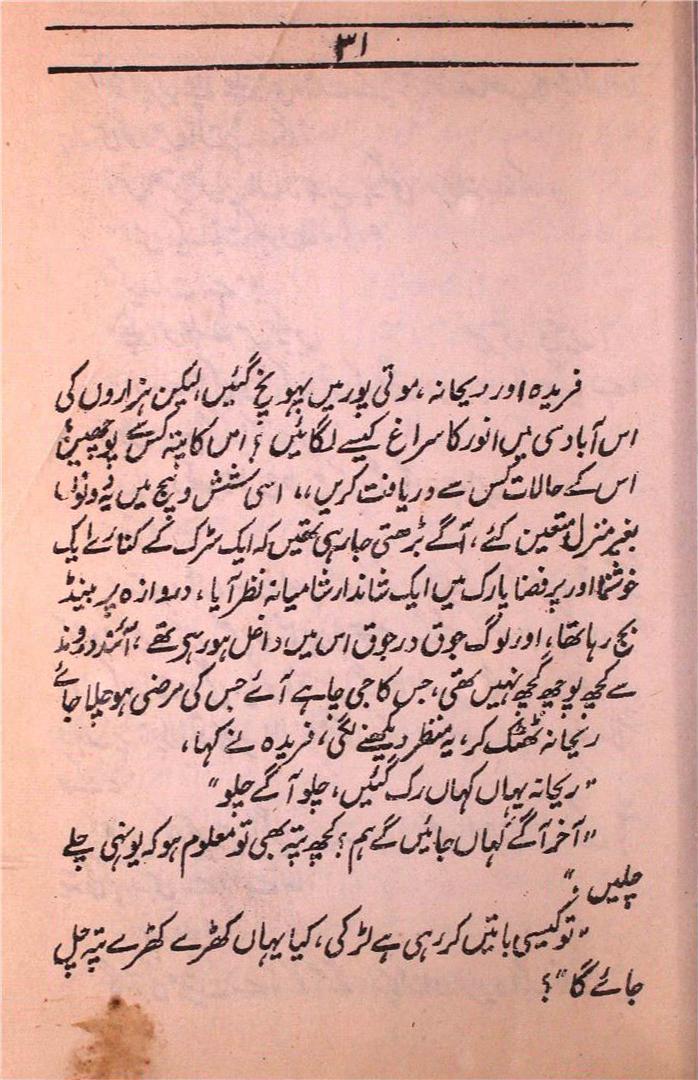 ۳۱
فریدہ اور ریحانہ، موتی پور میں پہونچ گئیں، لیکن ہزاروں کی
اس آبادی میں انور کا سراغ کیسے لگائیں؟ اس کا پتہ کس سے پوچھیں؟
اس کے حالات کس سے دریافت کریں،، اسی شش و پنج میں یہ دونوں
بغیر منزل متعین کئے، آگے بڑھتی جا رہی تھیں کہ ایک سڑک کے کنارے ایک
خوشنما اور پر فضا پارک میں ایک شاندار شامیانہ نظر آیا، دروازہ پر بینڈ
بج رہا تھا، اور لوگ جوق درجوق اس میں داخل ہو رہے تھے، آئند روند
سے کچھ پوچھ گچھ نہیں تھی، جس کا جی چاہے آئے جس کی مرضی ہو چلا جائے
ریحانہ ٹھٹک کر، یہ منظر دیکھنے لگی، فریدہ نے کہا،
"ریحانہ یہاں کہاں رک گئیں، چلو آگے چلو"
"آخر آگے کہاں جائیں گے ہم؟ کچھ پتہ بھی تو معلوم ہو کہ یونہی چلے
چلیں؟"
"تو کیسی باتیں کر رہی ہے لڑکی، کیا یہاں کھڑے کھڑے پتہ چل
جائے گا"؟